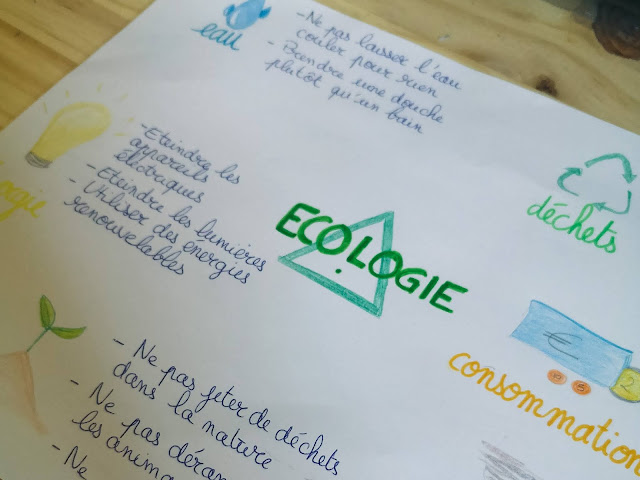 eau
- Ne pas laisser l'eau
couler pour rien
- Prendre une douche
plutôt qu'un bain
- Eteindre les
appareils
électriques
- Eteindre les lumières
- Utiliser des énergies
renouvelables
ogie
ECOLOGIE
déchets
€
2
consommation
- Ne pas jeter de déchets
dans la nature
- Ne pas déran
les anima
- Ne